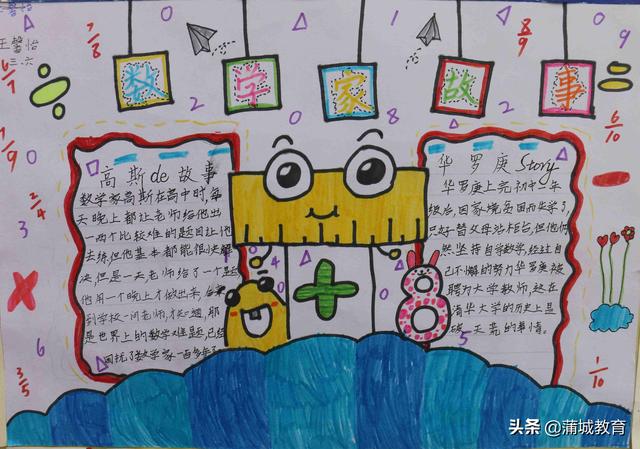 王馨怡
三、六
数学家故事
高斯de故事
数学家高斯在高中时,每
天晚上都让老师给他出
一两个比较难的题目让他
去练但他基本都能很快解
决,但是一天老师给了一个题
他用一个晚上才做出来,
到学校一问老师,才知道,那
是世界上的数学难题,已经
困扰了数学家一百多年了
华罗庚Story
华罗庚上完初中一年
级后,因家境贫困而失学了,
只好替父母站柜台,但他仍
然坚持自学数学,经过自
己不懈的努力华罗庚被
聘为大学教师,这在
清华大学的历史上是
破天荒的事情。
7/8
8/9
6/7
7/9
2/4
3/5
6/10
1/10
+
8
头条 @蒲城教育